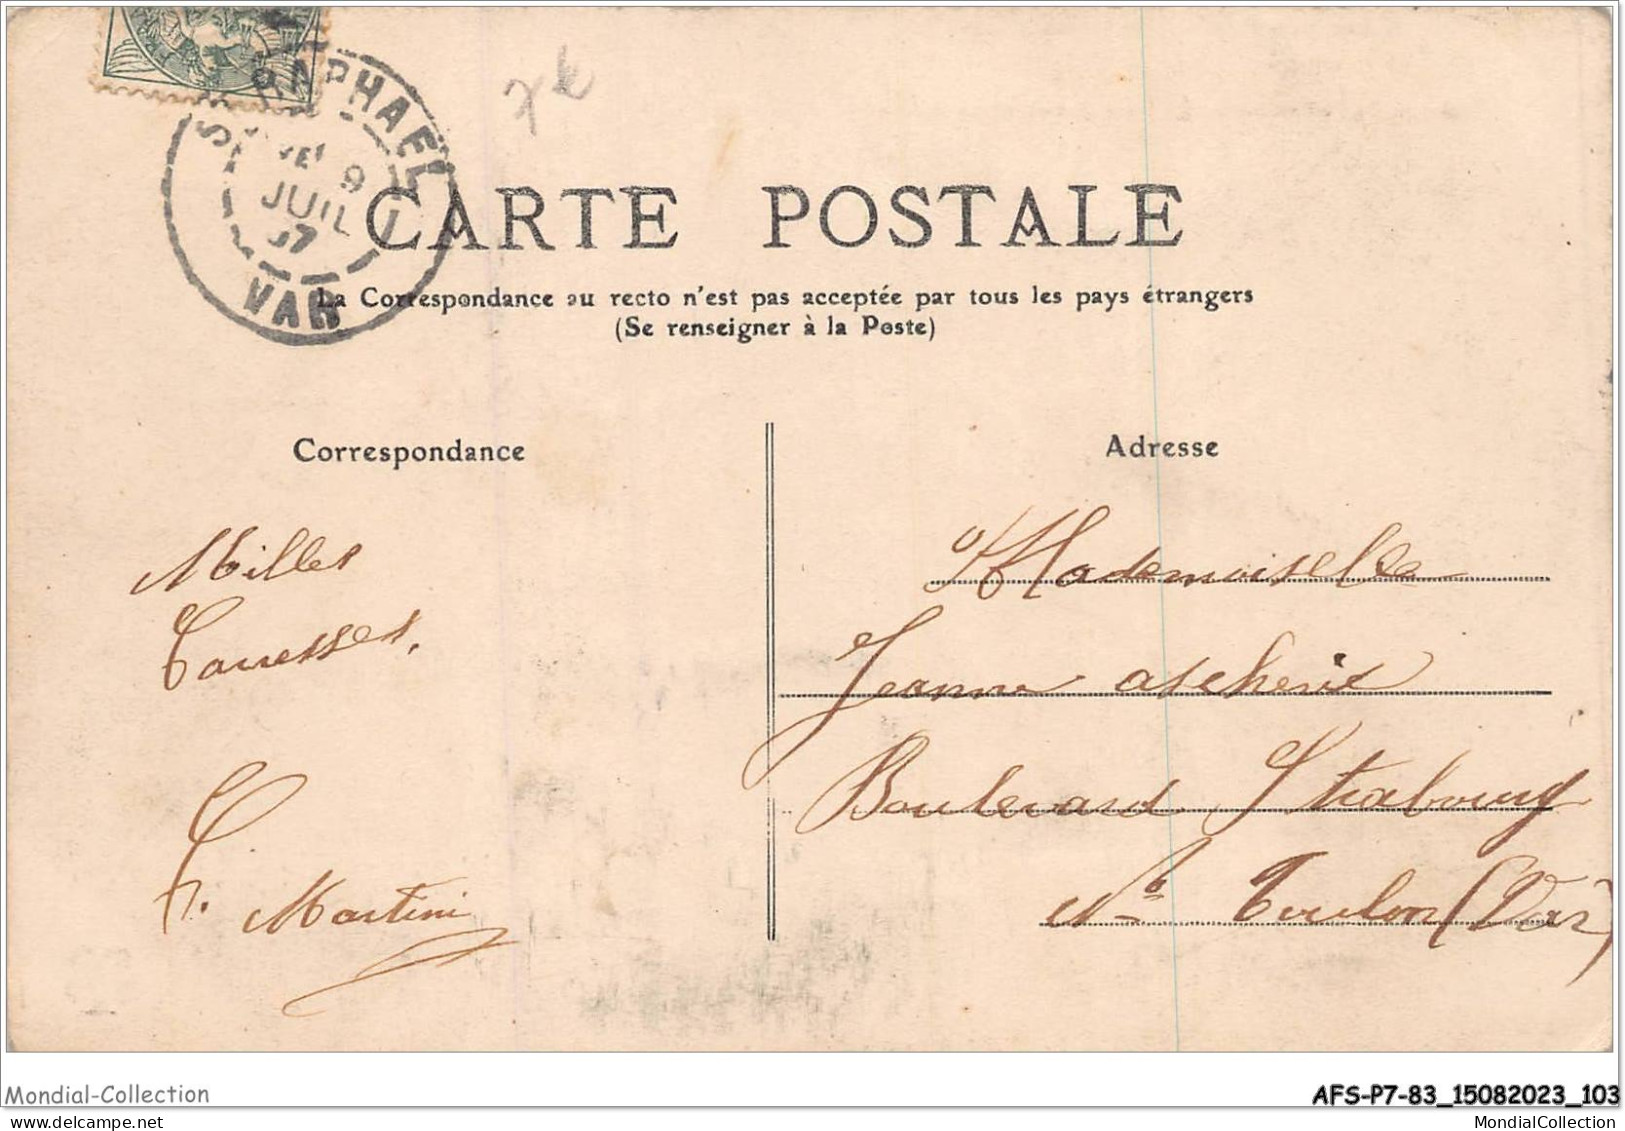 ST RAPHAEL
9
JUIL
07
VAR
CARTE POSTALE
La Correspondance au recto n'est pas acceptée par tous les pays étrangers
(Se renseigner à la Poste)
Correspondance
Adresse
Milles
Caresses.
Martini
Mademoiselle
Jeanne
Boulevard Strabourg
Toulon (Var)
Mondial-Collection
AFS-P7-83_15082023_103
MondialCollection